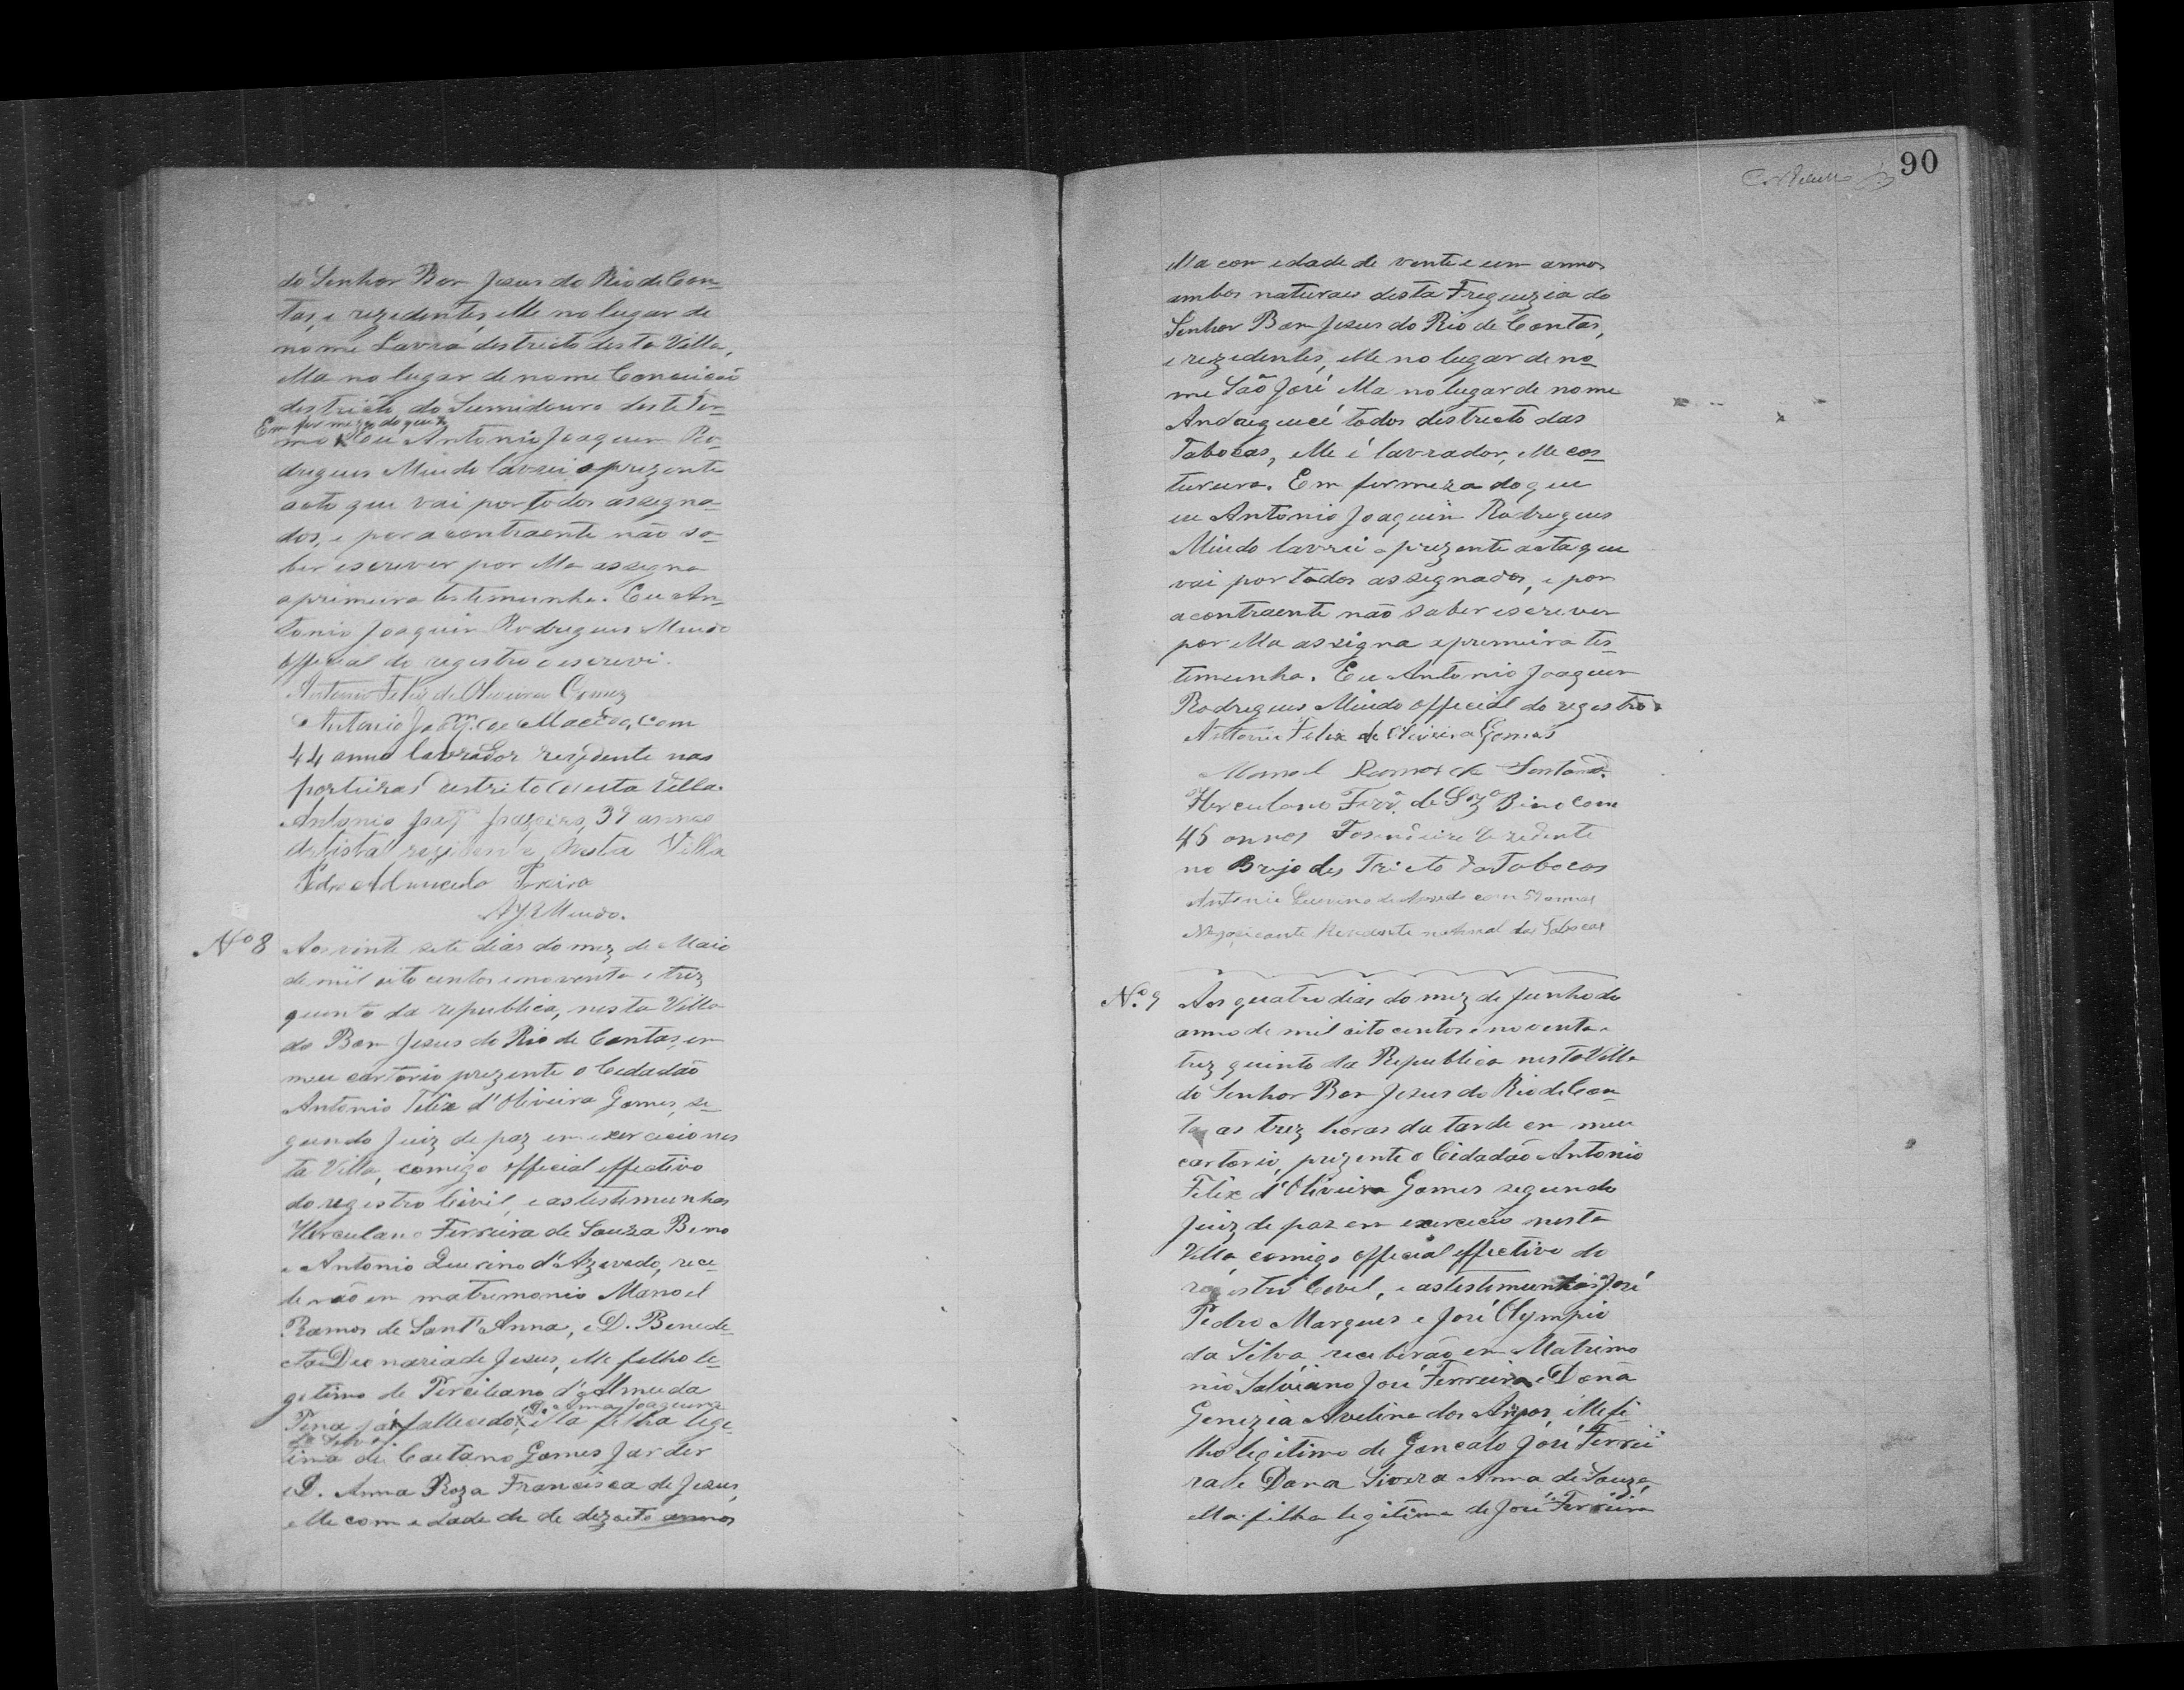 do Senhor Bom Jesus do Rio de Con-
tas, e rezidentes, elle no lugar de
nome Lavra destricto desta Villa,
ella no lugar de nome Conceicaõ
destricto do Sumidouro deste Ter-
Em firmeza do que
mo x eu Antonio Joaquim Ro-
drigues Miudo lavrei o prezente
acto que vai por todos assegna-
dos, e por a contraente não sa-
ber escrever por ella assigna
a primeira testemunha. Eu An-
tonio Joaquim Rodrigues Miudo
official do registro o escrevi.
Antonio Felix de Oliveira Gomez
Antonio Joaqm. de Macedo, com
44 annos lavrador rezidente nas
porteiras destrito desta Villa.
Antonio 39 annos
Artista rezidente nesta Villa
Pedro
A J R Miudo.
Nº 8 Aos vinte sete dias do mez de Maio
de mil oito centos e noventa e trez
quinto da republica, nesta Villa
do Bom Jesus do Rio de Contas, em
meu cartorio prezente o Cedadão
Antonio Felix d'Oliveira Gomes, se-
gundo Juiz de paz em exercicio nes
ta Villa, comigo official effectivo
do registro Civil, e as testemunhas
Herculano Ferreira de Souza Bino
e Antonio Querino d'Azevedo, rece-
berão em matremonio Manoel
Ramos de Sant'Anna, e D. Benede-
cta Deonaria de Jesus, elle filho le-
getimo de Perciliano d'Almeida
D. Anna Joaquina
Pena já fallecido, x ella filha lege-
da Silva
tima de Caetano Gomes Jarder
e D. Anna Roza Francisca de Jesus,
elle com edade de de dezoito annos
90
ella com edade de vente e um annos
ambos naturaes desta Freguezia do
Senhor Bom Jesus do Rio de Contas,
e rezedentes, elle no lugar de no-
me São José ella no lugar de nome
todos destricto das
Tabocas, elle é lavrador, elle cos-
tureira. Em firmeza do que
eu Antonio Joaquim Rodregues
Miudo lavrei o prezente acta que
vai por todos assegnados, e por
a contraente não saber escrever
por ella assigna a premeira tes-
temunha. Eu Antonio Joaquim
Rodregues Miudo official do registro
Antonio Felix de Oliveira Gomes
Manoel Ramos de Santana.
Herculano Ferrª. de Szª Bino com
45 annos Fasendeiro Rezedente
no Brejo des Tricto da Tabocas
Antonio Querino de Azevedo com 59 annos
Negociante Rezedente natural das Tabocas
Nº. 9 Aos quatro dias do mez de Junho do
anno de mil oito centos e noventa e
trez quinto da Republica nesta Villa
do Senhor Bom Jesus do Rio de Con-
tas as trez horas da tarde em meu
cartorio, prezente o Cidadão Antonio
Felix d'Oliveira Gomes segundo
Juiz de paz em exercecio nesta
Villa, comigo official effectivo do
registro Civel, e as testemunhas José
Pedro Marques e José Olympio
da Silva, receberão em Matrimo
nio Salviano José Ferreira e Dona
Genezia Avelina dos Anjos, elle fi-
lho legitimo de Goncalo José Ferrei
ra e Dona Anna de Souza,
ella filha legitima de José Ferreira